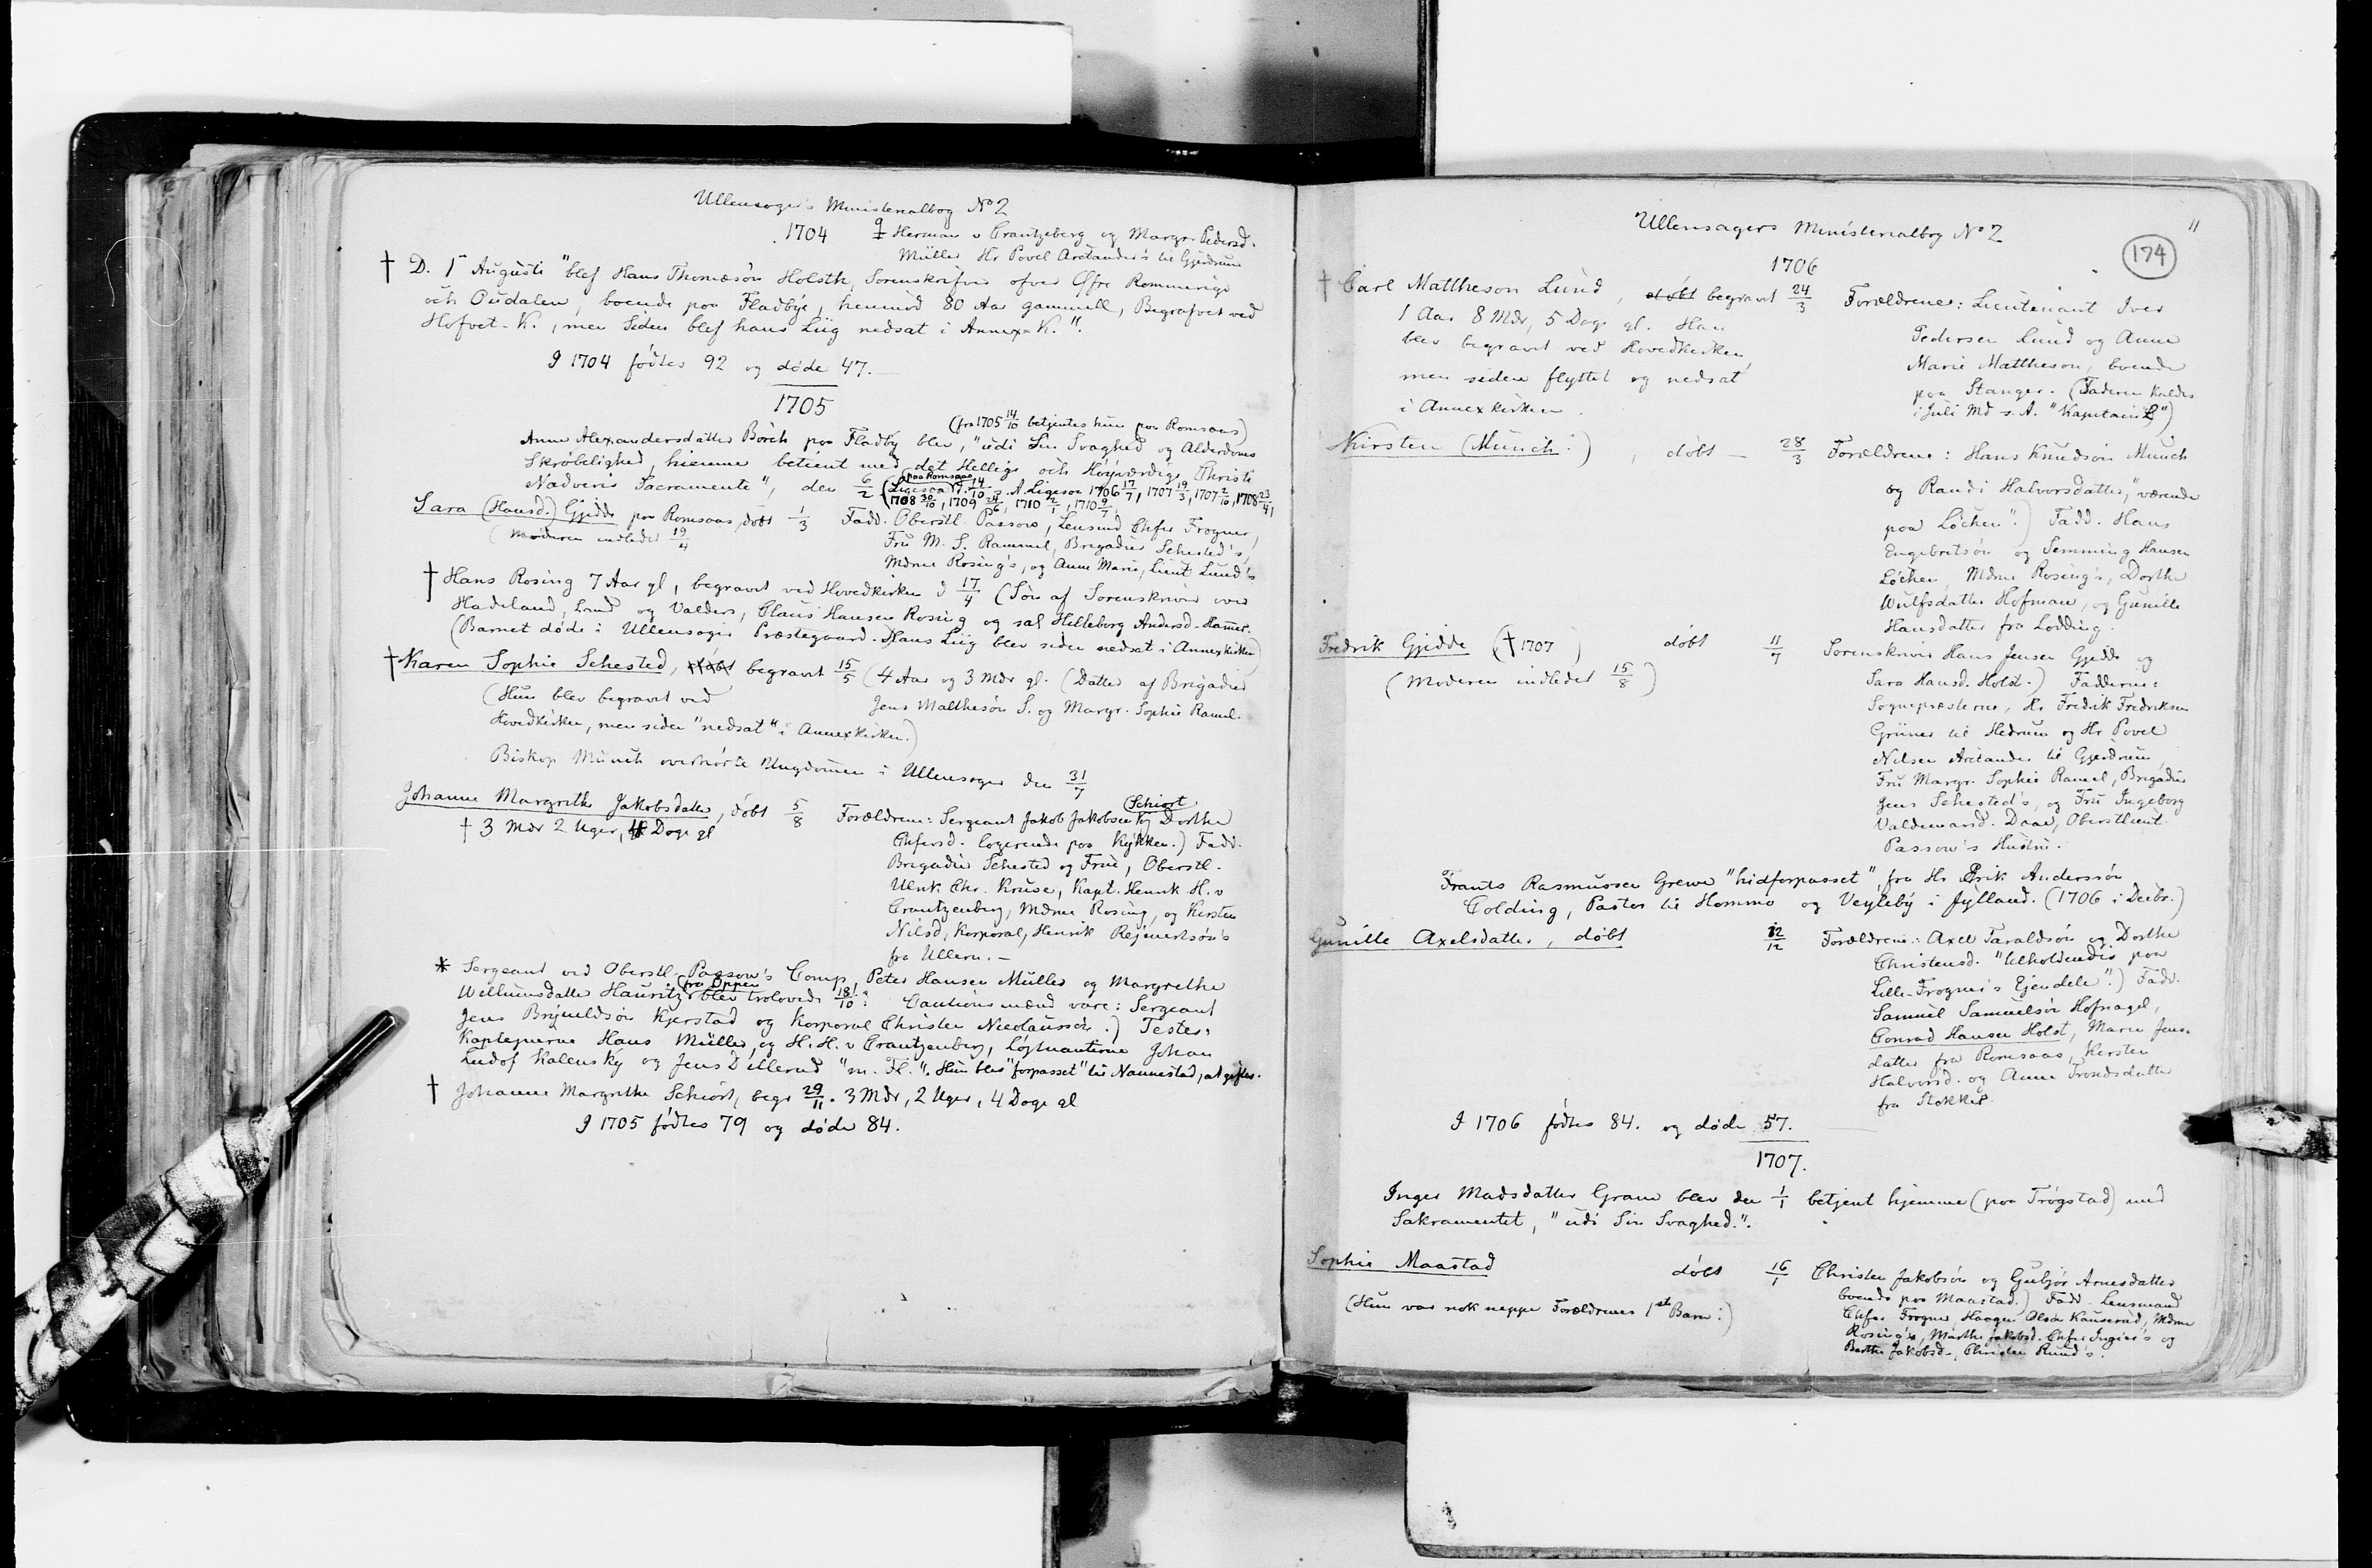 Ullensagers Ministerialbog No 2
1704 Herman v Crantzeberg og Margr. Pedersd.
Müller Hr Povel Aretander's til Gjerdrum
† D. 1 Augusti "blef Hans Thomæsøn Holsth, Sorenskrifver ofver Øfre Rommerige
och Oudalen, boende paa Fladbye, henimod 80 Aar gammell, Begrafvet ved
Hofvet-K., men Siden blef hans Liig nedsat i Annex-K."
I 1704 fødtes 92 og døde 47.
1705
(fra 1705 14/10 betjentes hun paa Romsaas)
Anne Alexandersdatter Børch paa Fladby blev, "udi Sin Svaghed og Alderdoms
Skrøbelighed, hiemme betient med det Hellige och Høyværdige Christi
Nadveris Sacramente", den 6/2 (Ligesaa paa Romsaas 14/10 s. A. Ligesaa 1706 17/7, 1707 19/3, 1707 2/10, 1708 23/4,
1708 30/10, 1709 24/6, 1710 2/1, 1710 9/7,
Sara (Hansd.) Gjedde paa Romsaas, døbt 1/3 Fadd. Oberstl. Passow, Lensmd Christ Frogner,
(Moderen indledet 19/4 Fru M. S. Rammel, Brigadier Sehested's,
Mdme Rosing's, og Anne Marie, Lieut Lund's
† Hans Rosing 7 Aar gl, begravet ved Hovedkirken d 17/4 (Søn af Sorenskriver over
Hadeland, Land og Valders, Claus Hansen Rosing og sal Helleborg Andersd. Hamer.
(Barnet døde i Ullensager Præstegaard. Hans Liig blev siden nedsat i Annexkirken)
† Karen Sophie Sehested, døbt begravet 15/5 (4 Aar og 3 Mdr gl. (Datter af Brigadier
(Hun blev begravet ved Jens Matthesøn S. og Margr. Sophie Ramel.
Hovedkirken, men siden "nedsat" i Annexkirken.)
Biskop Munch overhørte Ungdommen i Ullensager den 31/7
Johanne Margrethe Jakobsdatter, døbt 5/8 Forældrene: Sergeant Jakob Jakobsen Schiort og Dorthe
† 3 Mdr 2 Uger, 4 Dage gl Christensd. logerende paa Kykken.) Fadd.
Brigadier Sehested og Frue, Oberstl.
Ulrik Chr. Kruse, Kapt. Henrik H. v
Crantzenberg, Mdme Rosing, og Kirsten
Nilsd, Korporal, Henrik Rejnertsøn's
fra Ullern. —
* Sergeant ved Oberstl. Passow's Comp. Peter Hansen Müller og Margrethe
Willumsdatter Hauritz fra Oppen blev trolovede 18/10: Cautionsmænd vare: Sergeant
Jens Brynildsøn Kjerstad og Korporal Christen Nicolaussøn.) Testes:
Kaptejnerne Hans Müller, og H. H. v Crantzenberg, Løjtnanterne Johan
Ludof Kalensky og Jens Dillerud "m. Fl." Hun blev "forpasset" til Nannestad, at giftes.
† Johanne Margrethe Schiort, begr 29/11. 3 Mdr, 2 Uger, 4 Dage gl
I 1705 fødtes 79 og døde 84.
Ullensagers Ministerialbog No 2
11
174
1706
† Carl Mattheson Lund, døbt begravet 24/3 Forældrene: Lieutenant Iver
1 Aar 8 Mdr, 5 Dage gl. Han Pedersen Lund og Anne
blev begravet ved Hovedkirken, Marie Mattheson, boende
men siden flyttet og nedsat paa Stanger. (Faderen kaldes
i Annexkirken. i Juli Md s. A. "Kapitain L")
Kirsten (Munch:), døbt — 28/3 Forældrene: Hans Knudsøn Munch
og Randi Halvorsdatter, "værende
paa Løchen".) Fadd. Hans
Engebretsøn og Semming Hansen
Løchen, Mdme Rosing's, Dorthe
Wulfsdatter Hofman, og Gunille
Hansdatter fra Lodding.
Fredrik Gjedde († 1707) døbt 11/7 Sorenskriver Hans Jensen Gjedde og
(Moderen indledet 15/8) Sara Hansd. Holst.) Fadderne:
Sognepræsterne, Hr Fredrik Fredriksen
Grüner til Hedrum og Hr Povel
Nilsen Aretander til Gjerdrum,
Fru Margr. Sophie Ramel, Brigadier
Jens Sehested's, og Fru Ingeborg
Valdemarsd. Daae, Oberstlieut.
Passow's Hustru.
Frants Rasmussen Grewe "hidforpasset", fra Hr Erik Anderssøn
Colding, Pastor til Hommo og Veyleby i Jylland. (1706 i Decbr.)
Gunille Axelsdatter, døbt 12/12 Forældrene: Axel Taraldsøn og Dorthe
Christensd. "tilholdendes paa
Lille-Frogner's Ejendele".) Fadd.
Samuel Samuelsøn Hofnagel,
Conrad Hansen Holst, Maren Jens-
datter fra Romsaas, Kersten
Halvorsd. og Anne Trondsdatter
fra Stokker.
I 1706 fødtes 84. og døde 57.
1707.
Inger Madsdatter Gram blev den 1/1 betjent hjemme (paa Trøgstad) med
Sakramentet, "udi Sin Svaghed.".
Sophie Maastad døbt 16/1 Christen Jakobsøn og Gubjør Arnesdatter
boende paa Maastad.) Fadd. Lensmand
(Hun var nok neppe Forældrenes 1ste Barn:) Chfer Frogner Haagen Olsøn Kauserud, Mdme
Rosing's, Marthe Jakobsd. Chfer Ingier's og
Berthe Jakobsd., Christen Rund's.